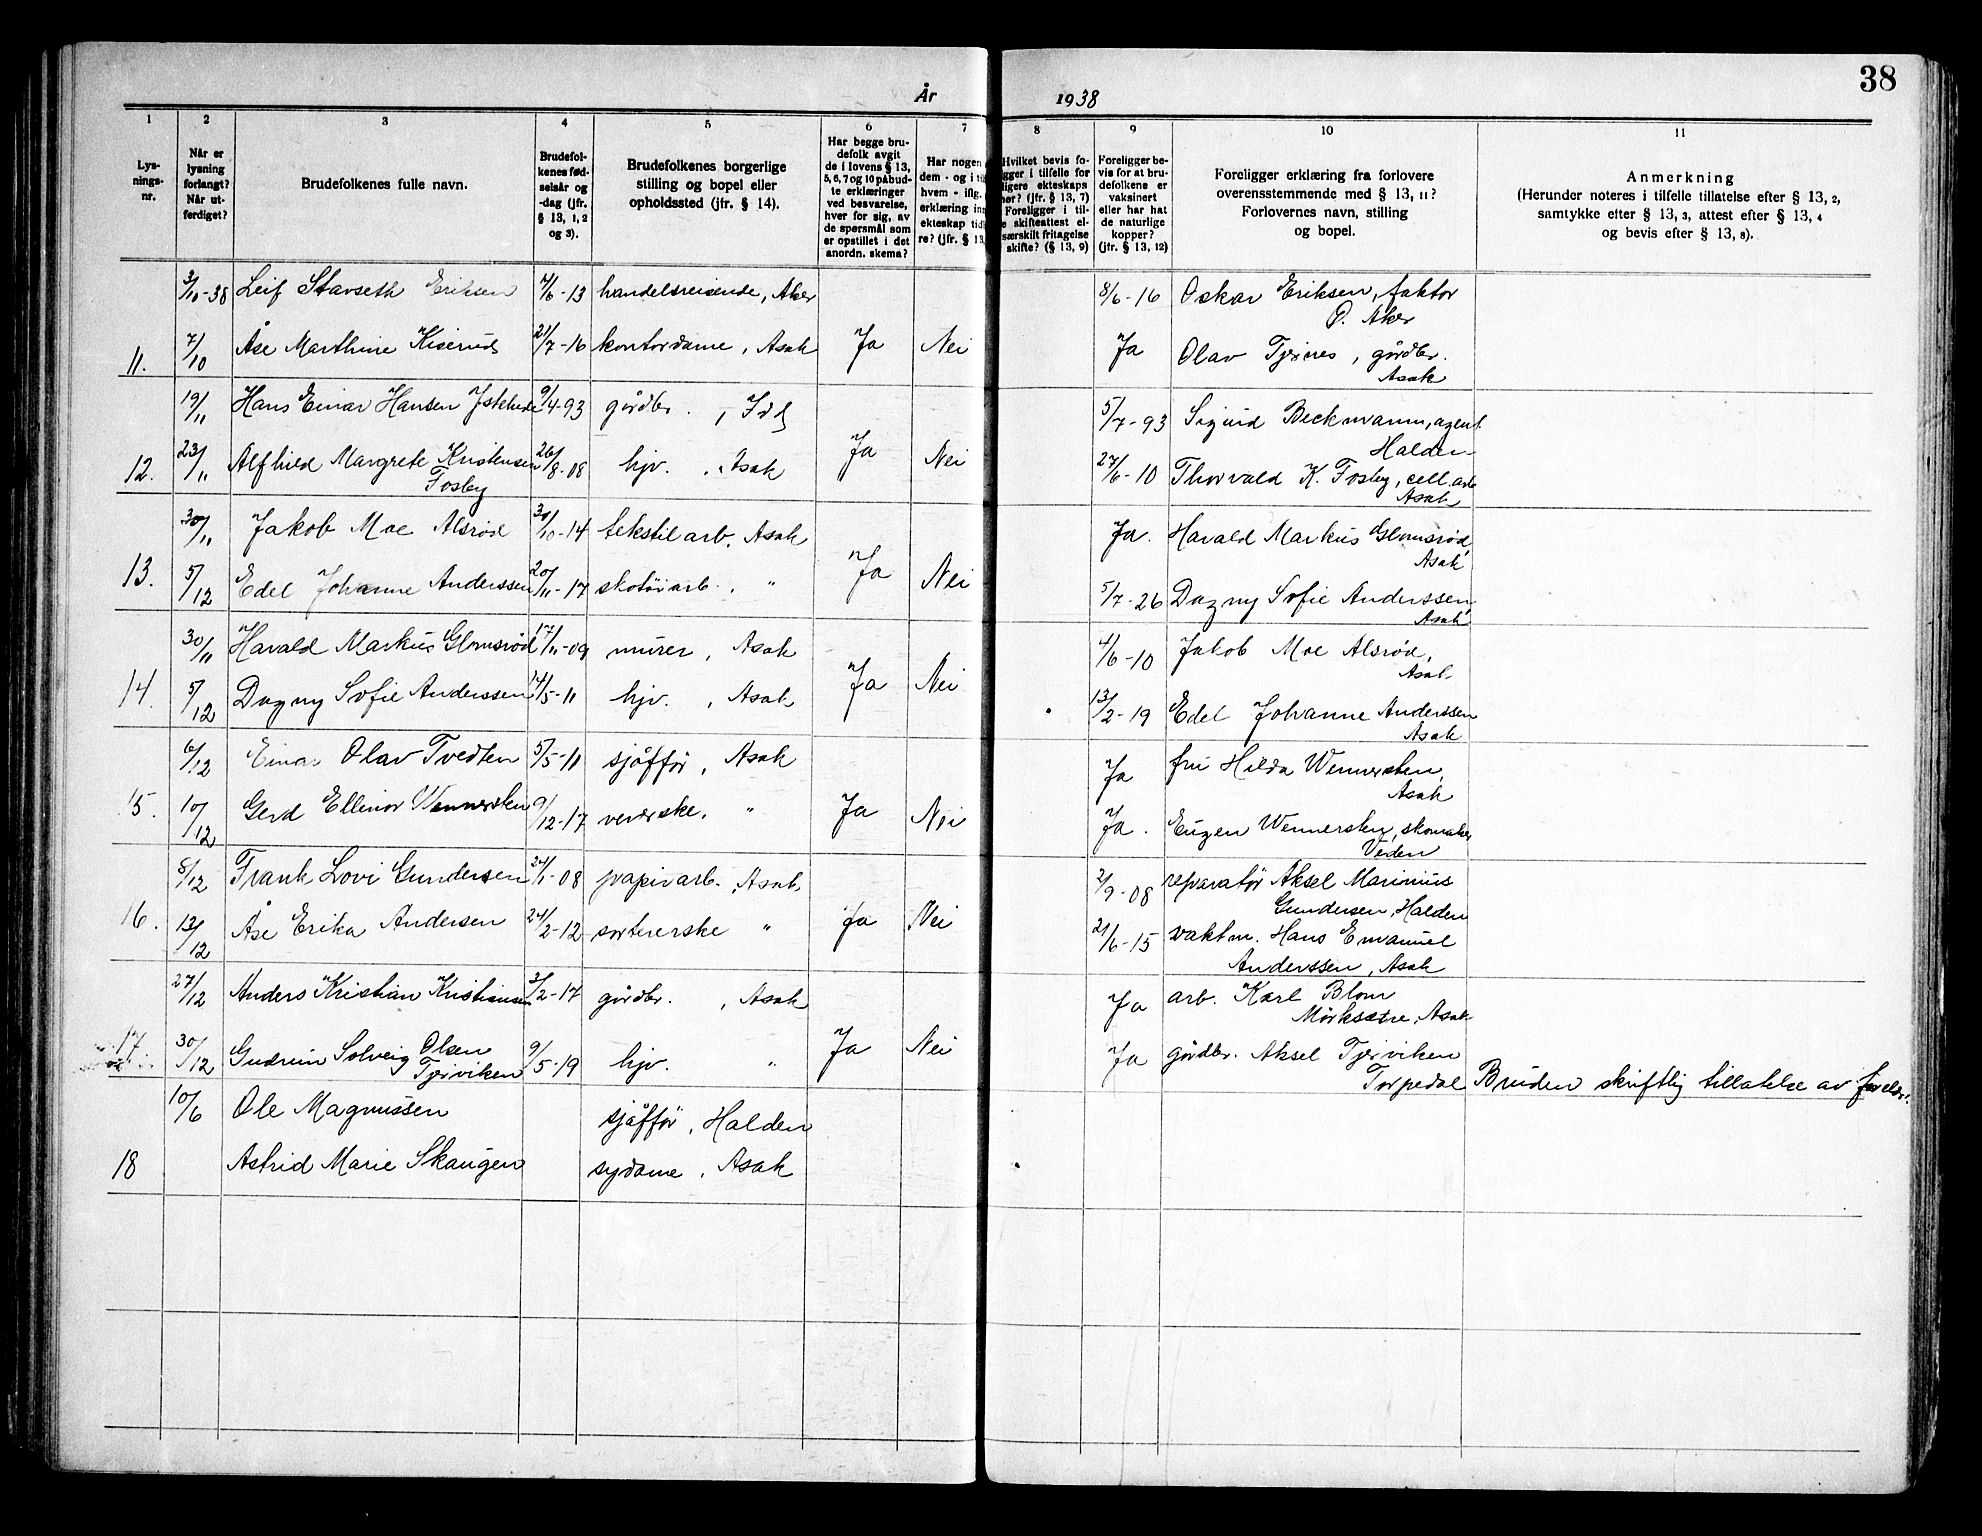 38
År 1938
1 2 3 4 5 6 7 8 9 10 11
Lys-
nings-
nr.
Når er
lysning
forlangt?
Når ut-
ferdiget?
Brudefolkenes fulle navn.
Brudefol-
kenes fød-
selsår og
-dag (jfr.
§ 13, 1, 2
og 3).
Brudefolkenes borgerlige
stilling og bopel eller
opholdssted (jfr. § 14).
Har begge bru-
defolk avgit
de i lovens § 13,
5, 6, 7 og 10 påbud-
te erklæringer
ved besvarelse,
hver for sig, av
de spørsmål som
er opstillet i det
anordn. skema?
Har nogen
dem - og i til
hvem - iflg.
erklæring inn
ekteskap tid
re? (jfr. § 13,
Hvilket bevis fo-
gger i tilfelle for
ligere ekteskaps
hør? (jfr. § 13, 7)
Foreligger i til-
e skifteattest el-
særskilt fritagelse
skifte? (§ 13, 9)
Foreligger be-
vis for at bru-
defolkene er
vaksinert
eller har hat
de naturlige
kopper?
(jfr. § 13, 12)
Foreligger erklæring fra forlovere
overensstemmende med § 13, 11?
Forlovernes navn, stilling
og bopel.
Anmerkning
(Herunder noteres i tilfelle tillatelse efter § 13, 2,
samtykke efter § 13, 3, attest efter § 13, 4
og bevis efter § 13, 8).
3/10-38 Leif Stavseth Eriksen 4/6-13 handelsreisende, Aker 8/6-16 Oskar Eriksen, faktor
Ø. Aker
11. 7/10 Åse Marthine Kiserud 21/7-16 kontordame, Asak Ja Nei Ja Olav Tjernes, gårdbr.
Asak
19/11 Hans Einar Hansen 9/4-93 gårdbr., Idd 5/7-93 Sigurd Beckmann, agent
Halden
12. 23/11 Alfhild Margrete Kristensen 26/8-08 hjv., Asak Ja Nei 27/6-10 Thorvald K. Fosby, cell.arb
Fosby Asak
30/11 Jakob Moe Alsrød 31/10-14 tekstilarb. Asak Ja. Harald Markus Glomsrød,
Asak
13. 5/12 Edel Johanne Anderssen 20/11-17 skotøiarb. " Ja Nei 5/7-26 Dagny Sofie Anderssen,
Asak
30/11 Harald Markus Glomsrød 17/11-09 murer, Asak 4/6-10 Jakob Moe Alsrød,
Asak
14. 5/12 Dagny Sofie Anderssen 14/5-11 hjv., Asak Ja Nei 13/2-19 Edel Johanne Anderssen
Asak
6/12 Einar Olav Tvedten 5/5-11 sjåffør, Asak Ja fru Hilda Wennersten,
Asak
15. 10/12 Gerd Ellinor Wennersten 9/12-17 veverske, " Ja Nei Ja. Eugen Wennersten, skomaker
Veden
8/12 Frank Lovi Gundersen 24/1-08 papirarb. Asak 2/9-08 reparatør Aksel Marinius
Gundersen, Halden
16. 13/12 Åse Erika Andersen 24/2-12 sortererske " Ja Nei 21/6-15 vaktm. Hans Emanuel
Anderssen, Asak
27/12 Anders Kristian Kristiansen 3/2-17 gårdbr., Asak Ja arb. Karl Blom
Mørksætre, Asak
17 30/12 Gudrun Solveig Olsen 9/5-19 hjv. " Ja Nei Ja gårdbr. Aksel Tjerviken
Tjerviken Torpedal Bruden skriftlig tillatelse av foreldr.
10/6 Ole Magnussen sjåffør, Halden
18 Astrid Marie Skaugen sydame, Asak